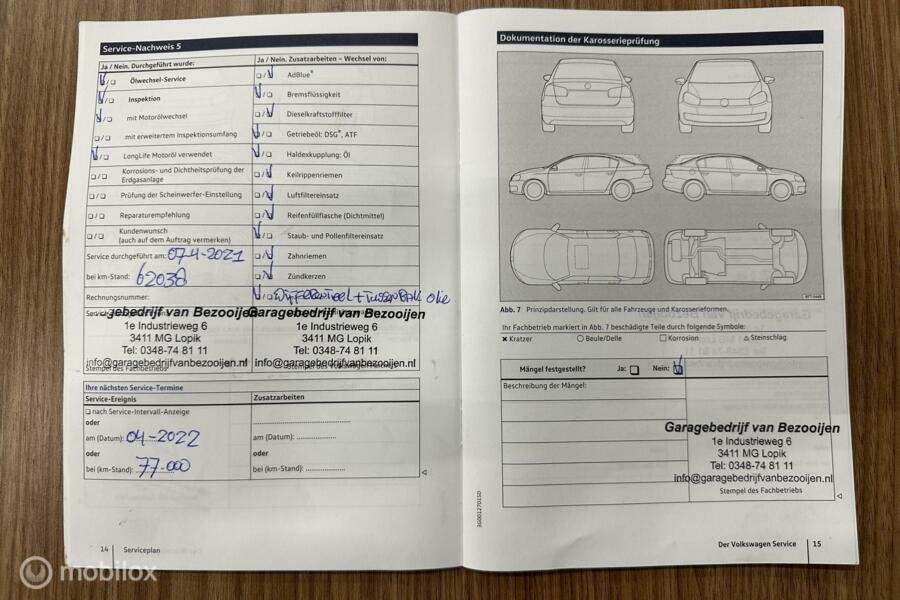 Service-Nachweis 5
Ja / Nein. Durchgeführt wurde:
Ölwechsel-Service
Inspektion
mit Motorölwechsel
mit erweitertem Inspektionsumfang
LongLife Motoröl verwendet
Korrosions- und Dichtheitsprüfung der
Erdgasanlage
Prüfung der Scheinwerfer-Einstellung
Reparaturempfehlung
Kundenwunsch
(auch auf dem Auftrag vermerken)
Service durchgeführt am: 07-4-2021
bei km-Stand: 62038
Rechnungsnummer:
Garagebedrijf van Bezooijen
1e Industrieweg 6
3411 MG Lopik
Tel: 0348-74 81 11
info@garagebedrijfvanbezooijen.nl
Stempel des Fachbetriebs
Ja / Nein. Zusatzarbeiten – Wechsel von:
AdBlue®
Bremsflüssigkeit
Dieselkraftstofffilter
Getriebeöl: DSG®, ATF
Haldexkupplung: Öl
Keilrippenriemen
Luftfiltereinsatz
Reifenfüllflasche (Dichtmittel)
Staub- und Pollenfiltereinsatz
Zahnriemen
Zündkerzen
Differentieel + tussenbak olie
Garagebedrijf van Bezooijen
1e Industrieweg 6
3411 MG Lopik
Tel: 0348-74 81 11
info@garagebedrijfvanbezooijen.nl
Ihre nächsten Service-Termine
Service-Ereignis
nach Service-Intervall-Anzeige
oder
am (Datum): 04-2022
oder
bei (km-Stand): 77.000
Zusatzarbeiten
am (Datum):
oder
bei (km-Stand):
14 Serviceplan
Dokumentation der Karosserieprüfung
Abb. 7 Prinzipdarstellung. Gilt für alle Fahrzeuge und Karosserieformen.
Ihr Fachbetrieb markiert in Abb. 7 beschädigte Teile durch folgende Symbole:
× Kratzer ○ Beule/Delle □ Korrosion △ Steinschlag
Mängel festgestellt? Ja: Nein:
Beschreibung der Mängel:
Garagebedrijf van Bezooijen
1e Industrieweg 6
3411 MG Lopik
Tel: 0348-74 81 11
info@garagebedrijfvanbezooijen.nl
Stempel des Fachbetriebs
3G0012701SD
Der Volkswagen Service 15
mobilox